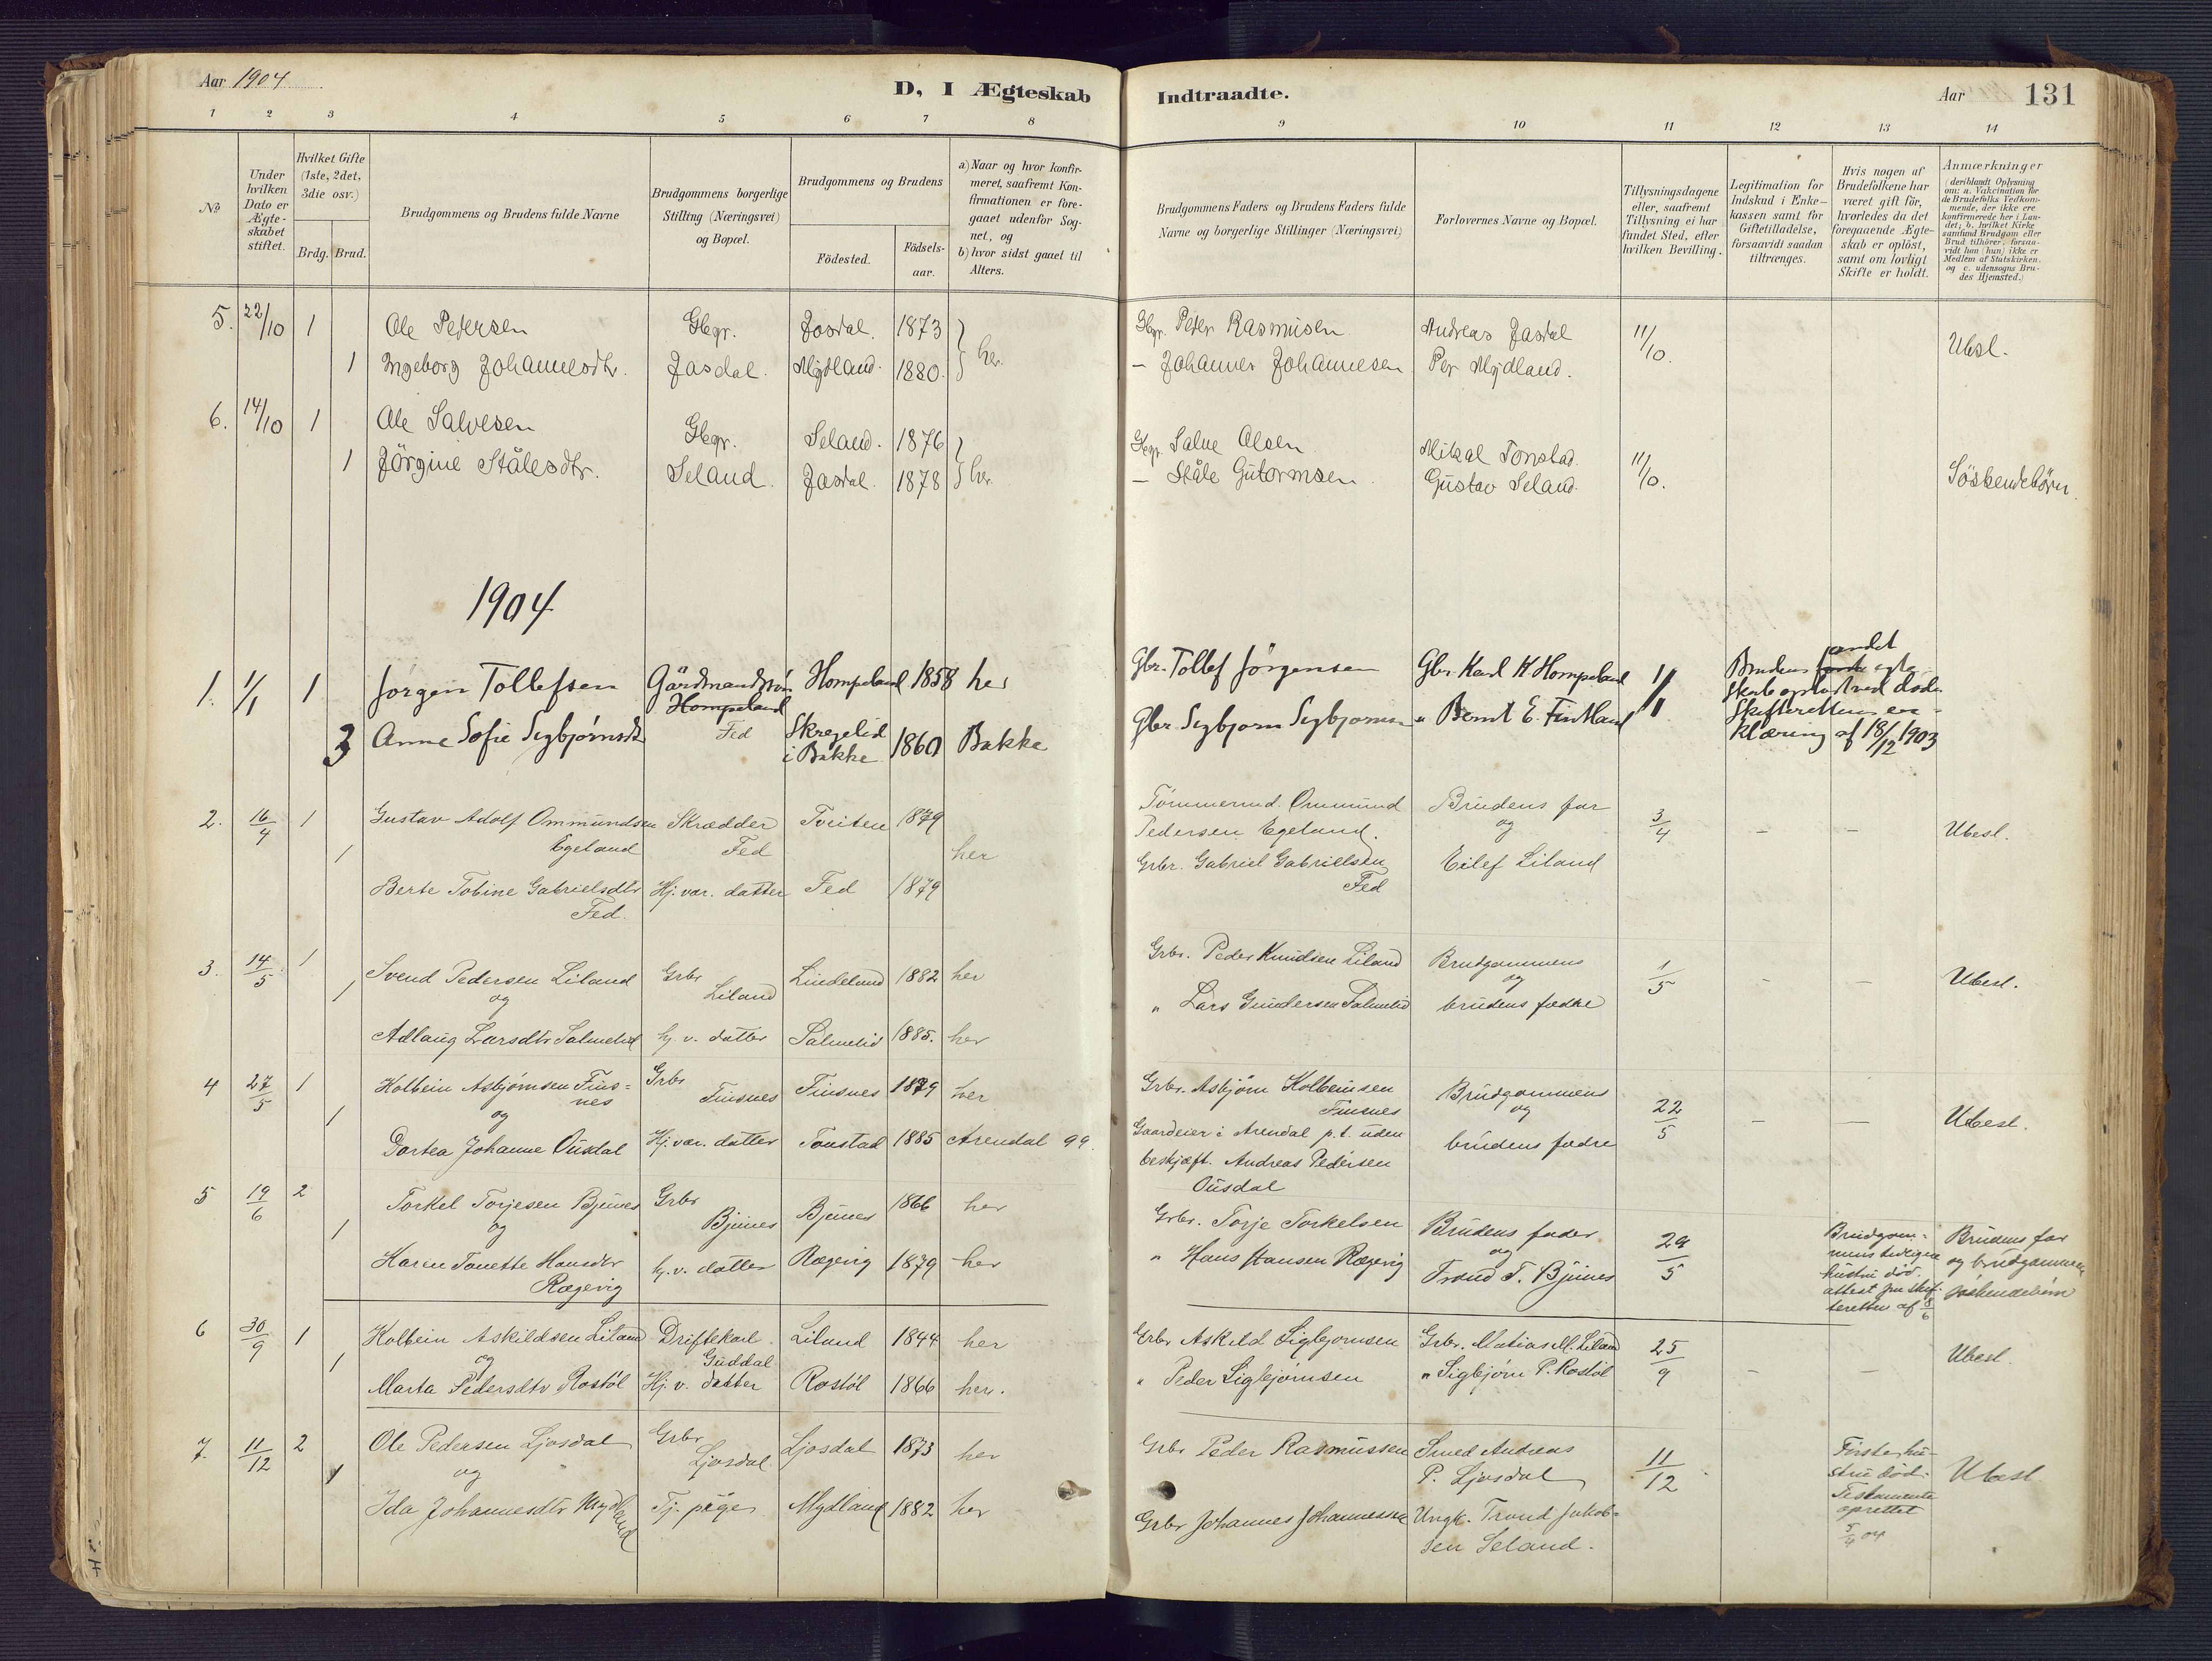 Aar 1904
D, I Ægteskab Indtraadte.
Aar 131
1 2 3 4 5 6 7 8 9 10 11 12 13 14
No
Under hvilken Dato er Ægte-skabet stiftet.
Hvilket Gifte (1ste, 2det, 3die osv.)
Brdg. Brud.
Brudgommens og Brudens fulde Navne
Brudgommens borgerlige Stilling (Næringsvei) og Bopæl.
Brudgommens og Brudens
Födested.
Födsels-aar.
a) Naar og hvor konfir-meret, saafremt Kon-firmationen er fore-gaaet udenfor Sog-net, og
b) hvor sidst gaaet til Alters.
Brudgommens Faders og Brudens Faders fulde Navne og borgerlige Stillinger (Næringsvei)
Forlovernes Navne og Bopæl.
Tillysningsdagene eller, saafremt Tillysning ei har fundet Sted, efter hvilken Bevilling.
Legitimation for Indskud i Enke-kassen samt for Giftetilladelse, forsaavidt saadan tiltrænges.
Hvis nogen af Brudefolkene har været gift för, hvorledes da det foregaaende Ægte-skab er oplöst, samt om lovligt Skifte er holdt.
Anmærkninger (deriblandt Oplysning om: a. Vakcination for de Brudefolks Vedkom-mende, der ikke ere konfirmerede her i Lan-det; b. hvilket Kirke samfund Brudgom eller Brud tilhörer, forsaa-vidt han (hun) ikke er Medlem af Statskirken, og c. udensogns Bru-des Hjemsted.)
5. 22/10 1 Ole Petersen Gbgr. Josdal. 1873 Gbgr. Peter Rasmusen Andreas Josdal 11/10. Ubesl.
1 Ingeborg Johannesdtr. Josdal. Mydland. 1880. her. — Johannes Johannesen Per Mydland.
6. 14/10 1 Ole Salvesen Gbgr. Seland. 1876 Gbgr. Salve Olsen Mikal Tonstad
1 Jörgine Stålesdtr. Seland. Josdal. 1878 her. — Ståle Gutormsen Gustav Seland. Söskendebörn.
1904
1. 1/1 1 Jörgen Tollefsen Gårdmandssön Hompeland 1858 her Gbr. Tollef Jörgensen Gbr. Karl K. Hompeland 1/1
Hompeland Fed
3 Anne Sofie Segbjørnsdtr Skregelid i Bakke 1860 Bakke Gbr. Segbjorn Segbjornsen " Bernt E. Fintland
andet
Brudens ægte-
skab opløst ved død.
Skifterettens er-
klæring af 18/12 1903
2. 16/4 1 Gustav Adolf Ommundsen Skrædder Tveiten 1879 Tømmermd. Ommund Brudens far 3/4 — — Ubesl.
1 Egeland Fed her Pedersen Egeland. og
Berte Tobine Gabrielsdtr Hj. vær. datter Fed 1879 Grbr. Gabriel Gabrielsen Eilef Liland
Fed. Fed
3. 14/5 1 Svend Pedersen Liland Grbr Lindeland 1882 her Grbr. Peder Knudsen Liland Brudgommens 1/5 - — Ubesl.
1 og Liland og
Adlaug Larsdtr Salmelid hj. v. datter Salmelid 1885. her " Lars Gundersen Salmelid brudens fædre
4 27/5 1 Kolbein Asbjørnsen Fins= Grbr Finsnes 1879 her Grbr. Asbjørn Kolbeinsen Brudgommens 22/5 — — Ubesl.
1 nes Finsnes Finsnes og
og
Dortea Johanne Ousdal Hj. vær. datter Tonstad 1885 Arendal 99. Gaardeier i Arendal p.t. uden brudens fædre
beskjæft. Andreas Pedersen
Ousdal
5 19/6 2 Torkel Torjesen Bjunes Grbr Bjunes 1866 her Grbr. Torje Torkelsen Brudens fader 29/5
1 og Bjunes og
Karen Tonette Hansdtr hj. v. datter Rægevig 1879 her " Hans Hansen Rægevig Trond T. Bjunes
Rægevig
Brudgom-
mens tidligere
hustru død.
attest fra Skif-
teretten af 8/6
Brudens far
og brudgommen
søskendebørn
6 30/9 1 Kolbein Askildsen Liland Driftekarl Liland 1844 her Grbr Askild Sigbjornsen Grbr. Matias M. Liland 25/9 — — Ubesl.
1 og Guddal
Marta Pedersdtr Rostøl Hj. v. datter Rostøl 1866 her. " Peder Sigbjørnsen " Sigbjørn P. Rostøl
7. 11/12 2 Ole Pedersen Ljosdal Grbr Ljosdal 1873 her Grbr Peder Rasmussen Smed Andreas 11/12 Ubesl.
1 og Ljosdal P. Ljosdal
Ida Johannesdtr Mydland Tj. pige Mydland 1882 her Grbr Johannes Johannessen Ungk. Trond Jakob-
sen Seland.
Første hu-
stru død.
Testamente
oprettet
5/4 04